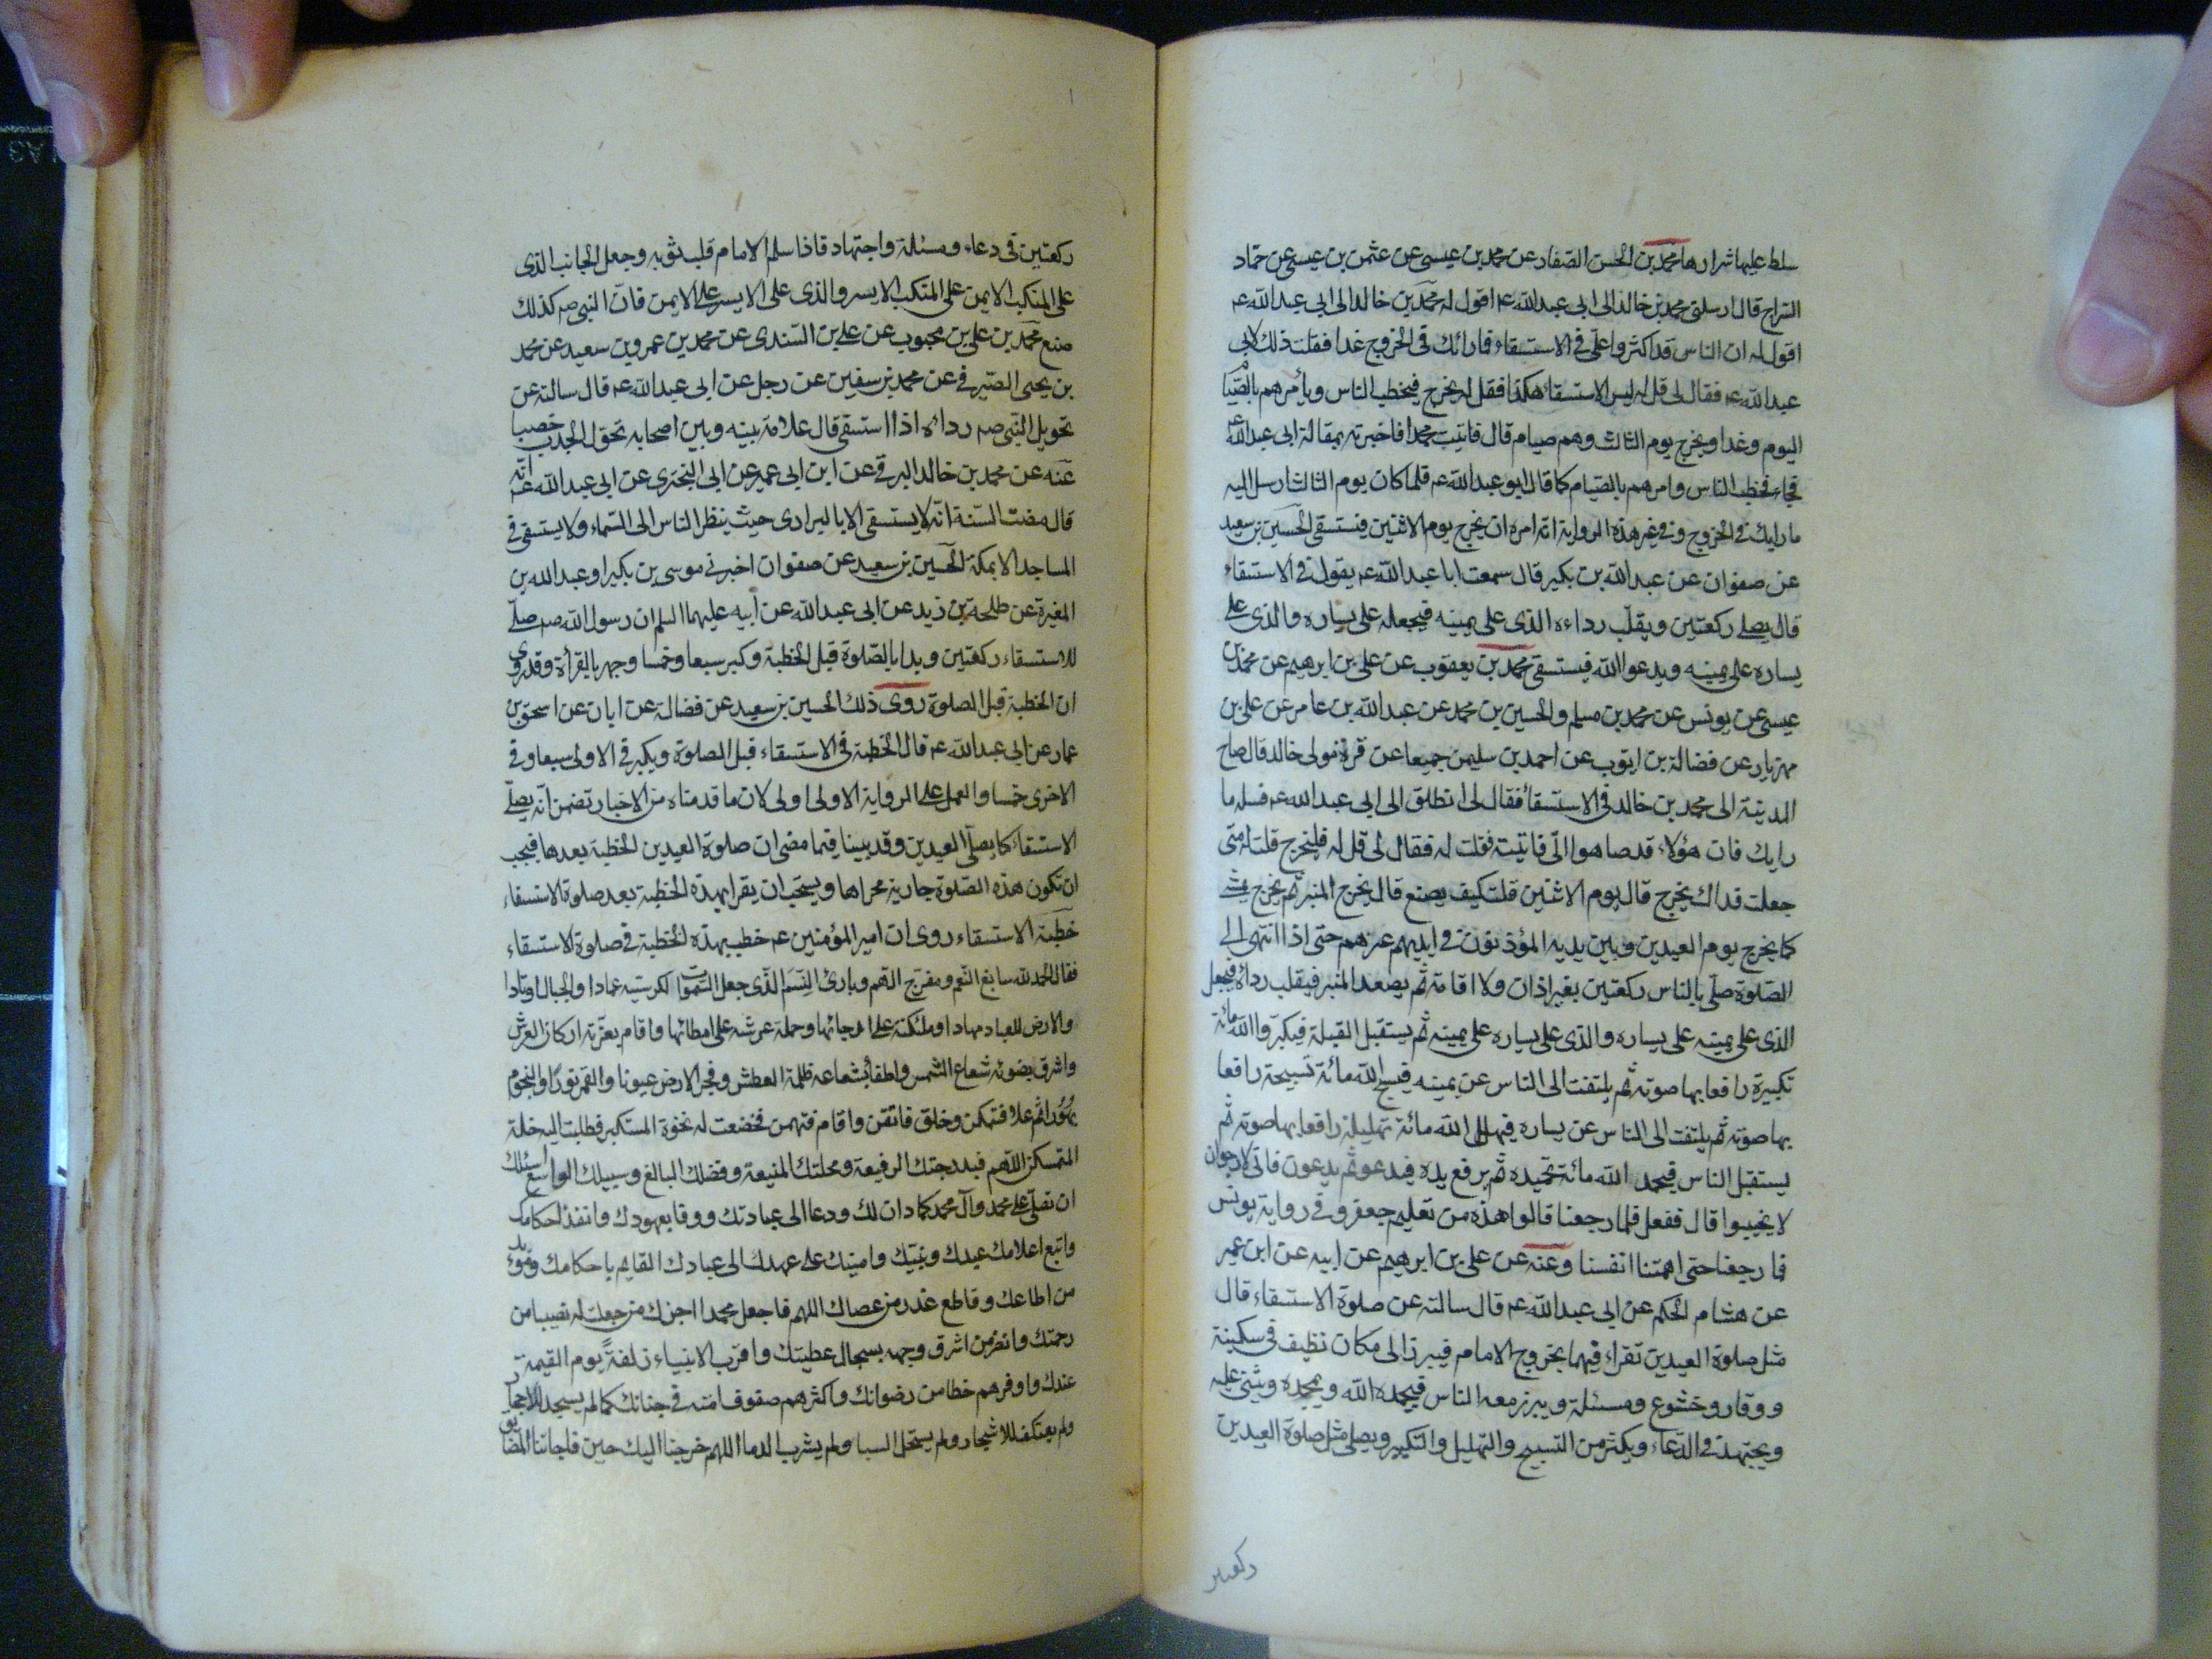 سلط عليها شرارها محمد بن الحسن الصفار عن محمد بن عيسى عن عثمن بن عيسى عن حماد
السراج قال ارسلنى محمد بن خالد الى ابى عبد الله عم اقول له محمد بن خالد الى ابى عبد الله عم
اقول له ان الناس قد اكثروا على فى الاستسقاء فما رائك فى الخروج غدا فقلت ذلك لابى
عبد الله عم فقال لى قل له ليس الاستسقاء هكذا فقل له يخرج فيخطب الناس ويأمرهم بالصيام
اليوم وغدا ويخرج يوم الثالث وهم صيام قال فاتيت محمدا فاخبرته بمقالة ابى عبد الله عم
فجاء فخطب الناس وامرهم بالصيام كما قال ابو عبد الله عم فلما كان يوم الثالث ارسل اليه
ما رايك فى الخروج وفى غير هذه الرواية انه امره ان يخرج يوم الاثنين فيستسقى الحسين بن سعيد
عن صفوان عن عبد الله بن بكير قال سمعت ابا عبد الله عم يقول فى الاستسقاء
قال يصلى ركعتين ويقلب رداءه الذى على يمينه فيجعله على يساره والذى على
يساره على يمينه ويدعوا الله فيستسقى محمد بن يعقوب عن على بن ابرهيم عن محمد بن
عيسى عن يونس عن محمد بن مسلم والحسين بن محمد عن عبد الله بن عامر عن على بن
مهزيار عن فضالة بن ايوب عن احمد بن سليمن جميعا عن مرة مولى خالد قال صاح
المدينة الى محمد بن خالد فى الاستسقاء فقال لى انطلق الى ابى عبد الله عم فسله ما
رايك فان هؤلاء قد صاحوا الى فاتيته فقلت له فقال لى قل له فليخرج قلت له متى
جعلت فداك يخرج قال يوم الاثنين قلت كيف يصنع قال يخرج المنبر ثم يخرج يمشى
كما يخرج يوم العيدين وبين يديه المؤذنون فى ايديهم عنزهم حتى اذا انتهى الى
الصلوة صلى بالناس ركعتين بغير اذان ولا اقامة ثم يصعد المنبر فيقلب رداءه فيجعل
الذى على يمينه على يساره والذى على يساره على يمينه ثم يستقبل القبلة فيكبر والله مائة
تكبيرة رافعا بها صوته ثم يلتفت الى الناس عن يمينه فيسبح الله مائة تسبيحة رافعا
بها صوته ثم يلتفت الى الناس عن يساره فيهلل الله مائة تهليلة رافعا بها صوته ثم
يستقبل الناس فيحمد الله مائة تحميده ثم يرفع يده فيدعو ثم يدعون فانى لارجو ان
لا يخيبوا قال ففعل فلما رجعنا قالوا هذه من تعليم جعفر وفى رواية يونس
فما رجعنا حتى اهمتنا انفسنا وعنه عن على بن ابرهيم عن ابيه عن ابن عمير
عن هشام الحكم عن ابى عبد الله عم قال سالته عن صلوة الاستسقاء قال
مثل صلوة العيدين تقراء فيهما يخروج الامام فيبرز الى مكان نظيف فى سكينة
ووقار وخشوع ومسئلة ويبرز معه الناس فيحمده الله ويمجده ويثنى عليه
ويجتهد فى الدعاء ويكثر من التسبيح والتهليل والتكبير ويصلى مثل صلوة العيدين
ركعتين
ركعتين فى دعاء ومسئلة واجتهاد فاذا سلم الامام قلب ثوبه وجعل الجانب الذى
على المنكب الايمن على المنكب الايسر والذى على الايسر على الايمن فان النبى صم كذلك
صنع محمد بن على بن محبوب عن على بن السندى عن محمد بن عمرو بن سعيد عن محمد
بن يحيى الصيرفى عن محمد بن سفين عن رجل عن ابى عبد الله عم قال سالته عن
تحويل النبى صم رداه اذا استسقى قال علامة بينه وبين اصحابه تحول الجدب خصبا
عنه عن محمد بن خالد البرقى عن ابن ابى عمير عن ابى البخترى عن ابى عبد الله عم انه
قال مضت السنة انه لا يستسقى الا بالبرارى حيث ينظر الناس الى السماء ولا يستسقى فى
المساجد الا بمكة الحسين بن سعيد عن صفوان اخبرنى موسى بن بكير او عبد الله بن
المغيرة عن طلحة بن زيد عن ابى عبد الله عن ابيه عليهما السلم ان رسول الله صم صلى
للاستسقاء ركعتين وبدا بالصلوة قبل الخطبة وكبر سبعا وخمسا وجهر بالقرأة وقد روى
ان الخطبة قبل الصلوة روى ذلك الحسين بن سعيد عن فضالة عن ابان عن اسحق بن
عمار عن ابى عبد الله عم قال الخطبة فى الاستسقاء قبل الصلوة ويكبر فى الاولى سبعا وفى
الاخرى خمسا والعمل على الرواية الاولى اولى لان ما قدمناه من الاخبار تضمن انه يصلى
الاستسقاء كما يصلى العيدين وقد بينا فيما مضى ان صلوة العيدين الخطبة بعدها فيجب
ان تكون هذه الصلوة جارية مجراها ويستحب ان يقرا بهذه الخطبة بعد صلوة الاستسقاء
خطبة الاستسقاء روى ان امير المؤمنين عم خطب بهذه الخطبة فى صلوة الاستسقاء
فقال الحمد لله سابغ النعم ومفرج الهم وبارئ النسم الذى جعل السموات لكرسيه عمادا والجبال اوتادا
والارض للعباد مهادا وملئكته على ارجائها وحملة عرشه على امطائها واقام بعزته اركان العرش
واشرق بضوئه شعاع الشمس واطفأ بشعاعه ظلمة الغطش وفجر الارض عيونا والقمر نورا والنجوم
بهورا ثم علا فتمكن وخلق فاتقن واقام فتهيمن فخضعت له نخوة المستكبر وطلبت اليه خلة
المتمسكن اللهم فبدرجتك الرفيعة ومحلتك المنيعة وفضلك البالغ وسبيلك الواسع اسئلك
ان تصلى على محمد وآل محمد كما دان لك ودعا الى عبادتك ووفا بعهودك وانفذ احكامك
واتبع اعلامك عبدك ونبيك وامينك على عهدك الى عبادك القايم باحكامك ومؤيد
من اطاعك وقاطع عذر من عصاك اللهم فاجعل محمدا اجزل من جعلت له نصيبا من
رحمتك وانضر من اشرق وجهه بسجال عطيتك واقرب الانبياء زلفة يوم القيمة
عندك واوفرهم حظا من رضوانك واكثرهم صفوف امته فى جنانك كما لم يسجد للاحجار
ولم يعتكف للاشجار ولم يستحل السبا ولم يشرب الدما اللهم خرجنا اليك حين فاجاتنا المضايق